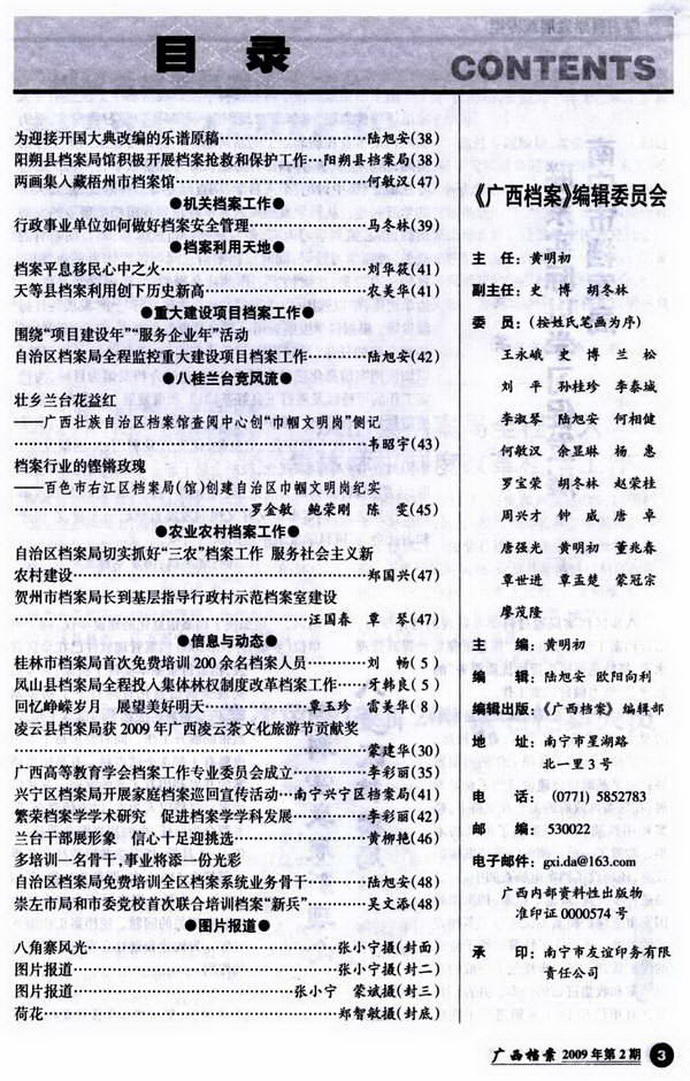 目 录
CONTENTS
为迎接开国大典改编的乐谱原稿……………………陆旭安(38)
阳朔县档案局馆积极开展档案抢救和保护工作…阳朔县档案局(38)
两画集入藏梧州市档案馆……………………何敏汉(47)
●机关档案工作●
行政事业单位如何做好档案安全管理……………………马冬林(39)
●档案利用天地●
档案平息移民心中之火……………………刘华筱(41)
天等县档案利用创下历史新高……………………农美华(41)
●重大建设项目档案工作●
围绕“项目建设年”“服务企业年”活动
自治区档案局全程监控重大建设项目档案工作………陆旭安(42)
●八桂兰台竞风流●
壮乡兰台花益红
——广西壮族自治区档案馆查阅中心创“巾帼文明岗”侧记
……………………韦昭宇(43)
档案行业的铿锵玫瑰
——百色市右江区档案局(馆)创建自治区巾帼文明岗纪实
……………………罗金敏 鲍荣刚 陈 雯(45)
●农业农村档案工作●
自治区档案局切实抓好“三农”档案工作 服务社会主义新
农村建设……………………郑国兴(47)
贺州市档案局长到基层指导行政村示范档案室建设
……………………汪国春 覃 琴(47)
●信息与动态●
桂林市档案局首次免费培训200余名档案人员………刘 畅( 5 )
凤山县档案局全程投入集体林权制度改革档案工作…牙韩良( 5 )
回忆峥嵘岁月 展望美好明天……………覃玉珍 雷美华( 8 )
凌云县档案局获2009年广西凌云茶文化旅游节贡献奖
……………………蒙建华(30)
广西高等教育学会档案工作专业委员会成立………李彩丽(35)
兴宁区档案局开展家庭档案巡回宣传活动…南宁兴宁区档案局(41)
繁荣档案学学术研究 促进档案学学科发展………李彩丽(42)
兰台干部展形象 信心十足迎挑选……………黄柳艳(46)
多培训一名骨干,事业将添一份光彩
自治区档案局免费培训全区档案系统业务骨干………陆旭安(48)
崇左市局和市委党校首次联合培训档案“新兵”………吴文添(48)
●图片报道●
八角寨风光……………………张小宁摄(封面)
图片报道……………………张小宁摄(封二)
图片报道……………………张小宁 蒙斌摄(封三)
荷花……………………郑智敏摄(封底)
《广西档案》编辑委员会
主 任：黄明初
副主任：史 博 胡冬林
委 员：(按姓氏笔画为序)
王永峨 史 博 兰 松
刘 平 孙桂珍 李泰城
李淑琴 陆旭安 何相健
何敏汉 余显琳 杨 惠
罗宝荣 胡冬林 赵荣桂
周兴才 钟 威 唐 卓
唐强光 黄明初 董兆春
覃世进 覃孟楚 蒙冠宗
廖茂隆
主 编：黄明初
编 辑：陆旭安 欧阳向利
编辑出版：《广西档案》编辑部
地 址：南宁市星湖路
北一里3号
电 话：(0771) 5852783
邮 编：530022
电子邮件：gxi.da@163.com
广西内部资料性出版物
准印证0000574号
承 印：南宁市友谊印务有限
责任公司
广西档案 2009年第2期 3